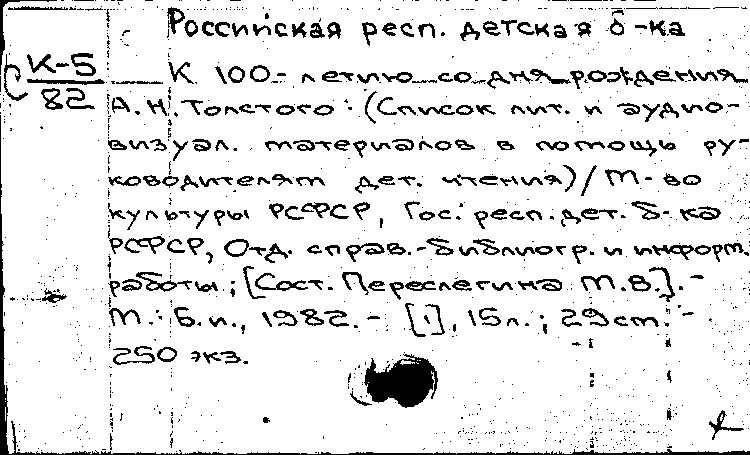 Российская респ. детская б-ка
С К-5
82
К 100-летию со дня рождения
А.Н.Толстого : (Список лит. и аудио-
визуал. материалов в помощь ру-
ководителям дет. чтения)/М-во
культуры РСФСР, Гос. респ. дет. б-ка
РСФСР, Отд. справ.-библиогр. и информ.
работы; [Сост. Переслегина М.В.]. -
М.: Б.и., 1982. - [1], 15л.; 29см. -
250 экз.